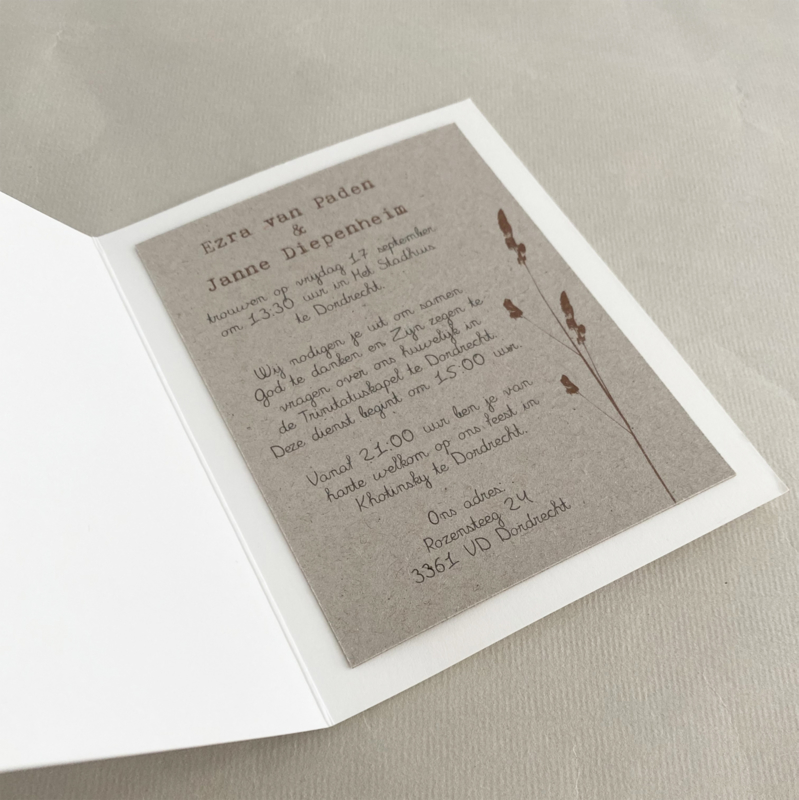 Ezra van Paden
&
Janne Diepenheim
trouwen op vrijdag 17 september
om 13:30 uur in Het Stadhuis
te Dordrecht.
Wij nodigen je uit om samen
God te danken en Zijn zegen te
vragen over ons huwelijk in
de Trinitatuskapel te Dordrecht.
Deze dienst begint om 15:00 uur.
Vanaf 21:00 uur ben je van
harte welkom op ons feest in
Khotinsky te Dordrecht.
Ons adres:
Rozensteeg 24
3361 VD Dordrecht